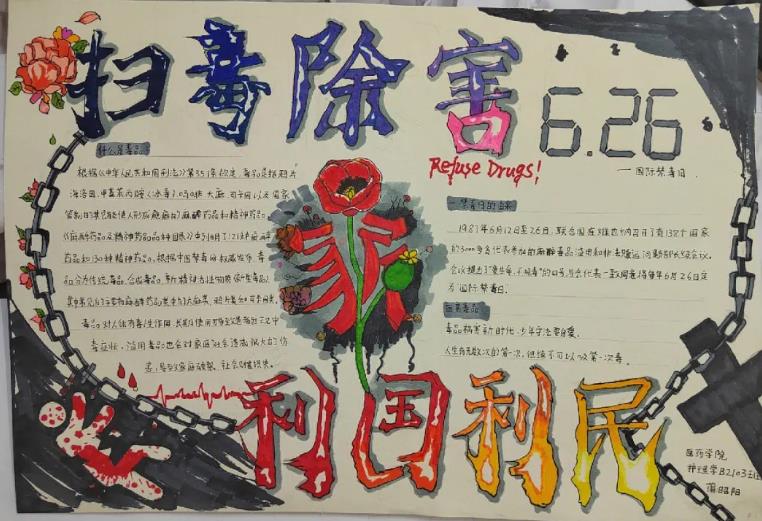 扫毒除害
6.26
Refuse Drugs!
一国际禁毒日
什么是毒品?
根据《中华人民共和国刑法》第357条规定,毒品是指鸦片
海洛因、甲基苯丙胺(冰毒)、吗啡、大麻、可卡因以及国家
管制的其他能使人形成瘾癖的麻醉药品和精神药品。
《麻醉药品及精神药品品种目录》中列明了121种麻醉
药品和130种精神药品。
毒品分为传统毒品、合成毒品、新精神活性物质(新型毒品)
其中最常见的主要是麻醉药品类中的大麻类、鸦片类和可卡因类。
毒品对人体有毒性作用
毒症状,滥用毒品也会对家庭社会造成
家庭破裂、社会财
禁毒日的由来
1987年6月12日至26日,联合国在维也纳召开了有138个国家
的3000多名代表参加的麻醉品滥用和非法贩运问题部长级会议,
会议提出了"爱生命,不吸毒"的口号,与会代表一致同意将每年6月26日定
为国际禁毒日。
毒品祸害新时代,少年守法要自爱。
人生有无数次的第一次,但绝不可以吸第一次毒。
利国利民
医药学院
护理学B2103班